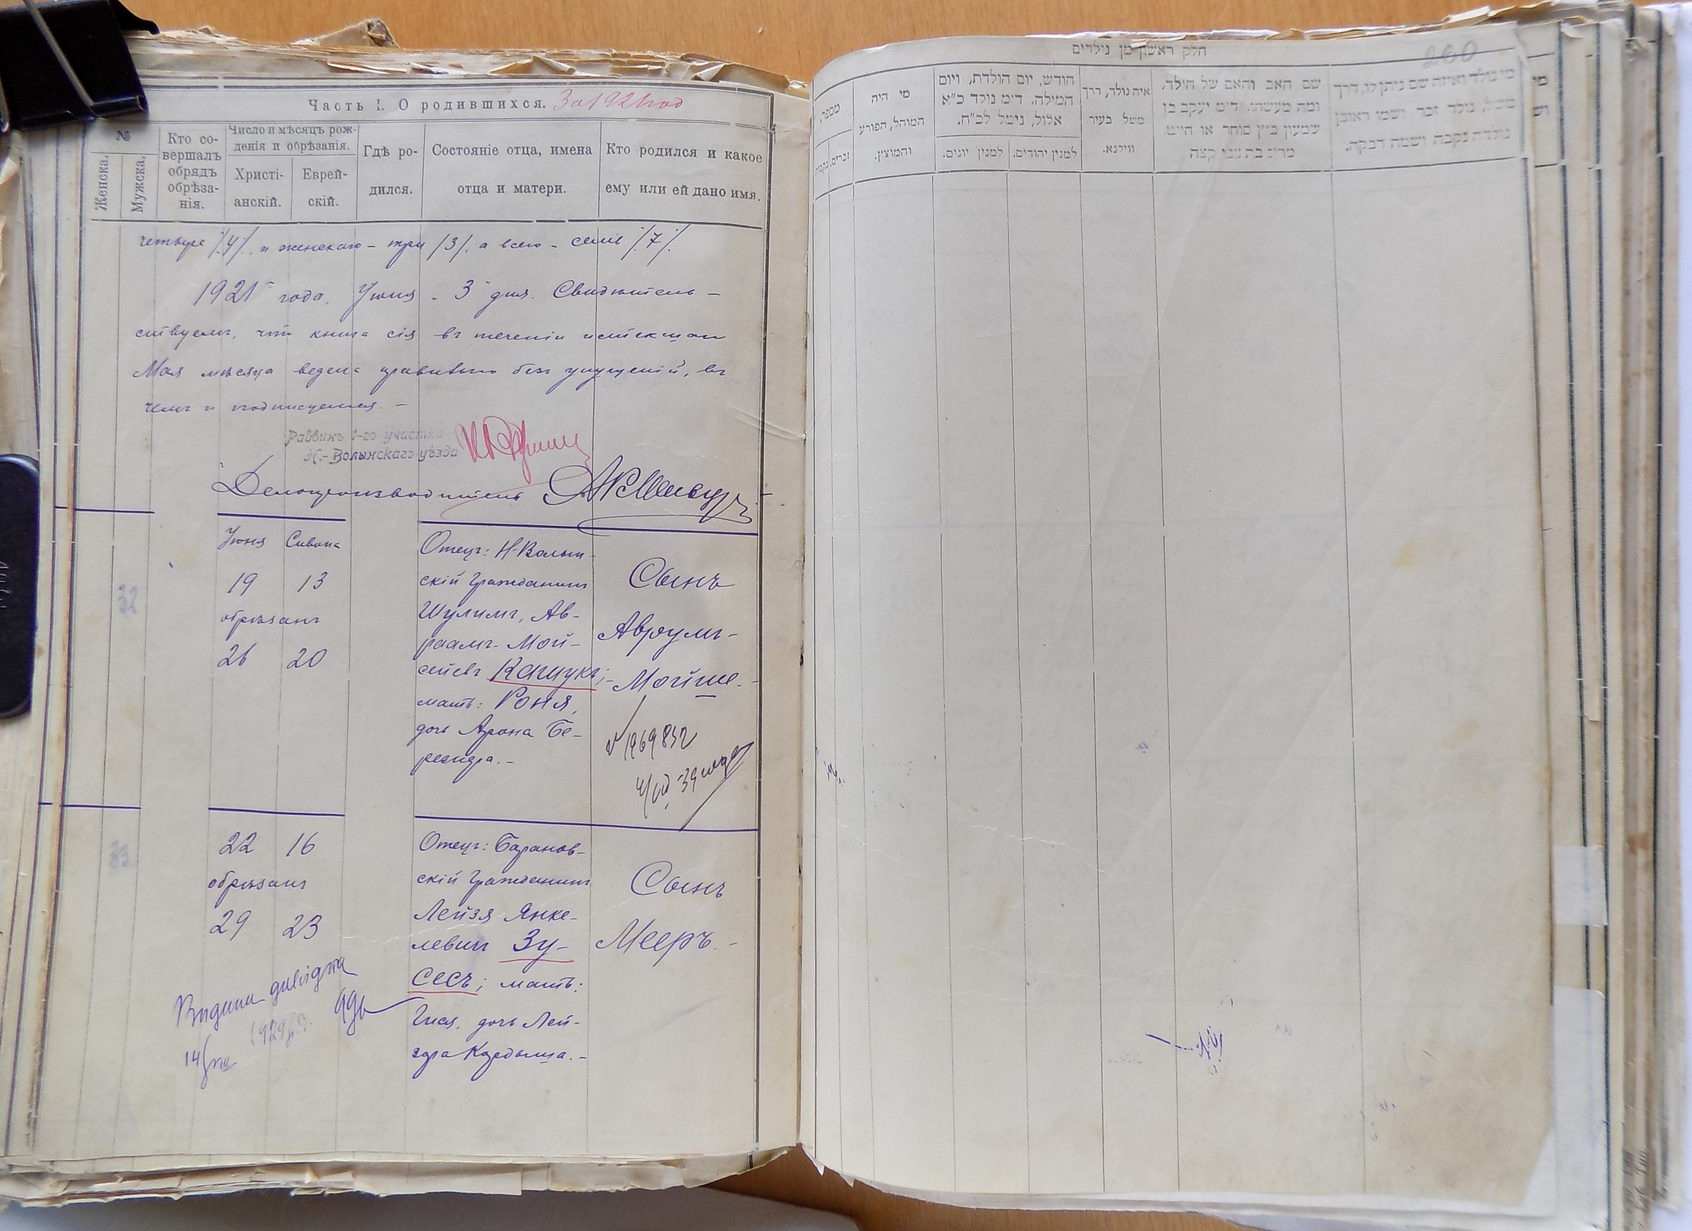 Часть I. О родившихся. За 1921 год
№
Женска.
Мужска.
Кто совершалъ обрядъ обрѣзанія.
Число и мѣсяцъ рождения и обрѣзанія.
Христіанскій.
Еврейскій.
Гдѣ родился.
Состояніе отца, имена отца и матери.
Кто родился и какое ему или ей дано имя.
четыре /4/, и женскаго - три /3/, а всего - семь /7/.
1921 года, Июня 3 дня. Свидѣтель-
ствуемъ, что книга сія въ теченіи истекшаго
Мая мѣсяца ведена правильно безъ упущеній, въ
чемъ и подписуемся. -
Раввинъ 1-го участка
Н.-Волынскаго уѣзда
Делопроизводитель
32
Июня Сивона
19 13
обрѣзанъ
26 20
Отецъ: Н-Волын-
скій гражданинъ
Шулимъ, Ав-
раамъ Мой-
сеевъ Кащукъ;
мать: Роня,
дочь Арона Бе-
резидра. -
Сынъ
Аврумъ-
Мойше. -
1969832
33
22 16
обрѣзанъ
29 23
Отецъ: Баранов-
скій гражданинъ
Лейзя Янке-
левичъ Зу-
сесъ; мать:
дочь Лей-
Сынъ
Мееръ. -
חלק ראשון מן נולדים
260
מספר
זכרים
נקבות
מי היה
המוהל, הפורע
והמוצץ.
חודש, יום הולדת, ויום
המילה, ד״מ נולד כ״א
אלול, נימל לכ״ח.
למנין יונים.
למנין יהודים.
איה נולד, דרך
משל בעיר
ווילנא.
שם האב והאם של הילד,
ומה מעשהו, ד״מ יעקב בן
שמעון כ״ץ סוחר או חייט
מי נולד ואיזה שם ניתן לו, דרך
משל, נולד זכר ושמו ראובן
נולדה נקבה ושמה רבקה.